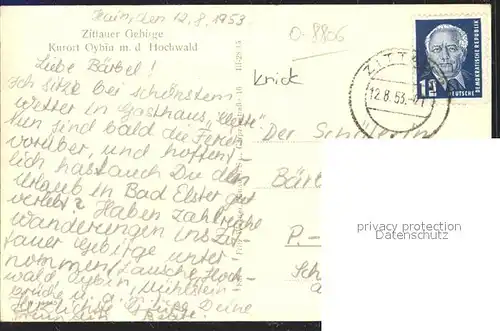 Hain, den 12.8.1953
Zittauer Gebirge
Kurort Oybin m. d. Hochwald
Liebe Bärbel!
Ich sitze bei schönstem
Wetter in Gasthaus,
Nun sind bald die Ferien
vorüber, und hoffent-
lich hast auch Du den
Urlaub in Bad Elster gut
verlebt? Haben zahlreiche
Wanderungen ins Zit-
tauer Gebirge unter
nommen, Lausche, Hoch-
wald, Oybin, Mühlstein-
brüche u.
Herzlichste Grüße Deine
O-8806
Knick
ZITTAU
12.8.53.
12
DEUTSCHE
DEMOKRATISCHE REPUBLIK
Der Schülerin
Bärb
P.-
Sch
privacy protection
Datenschutz